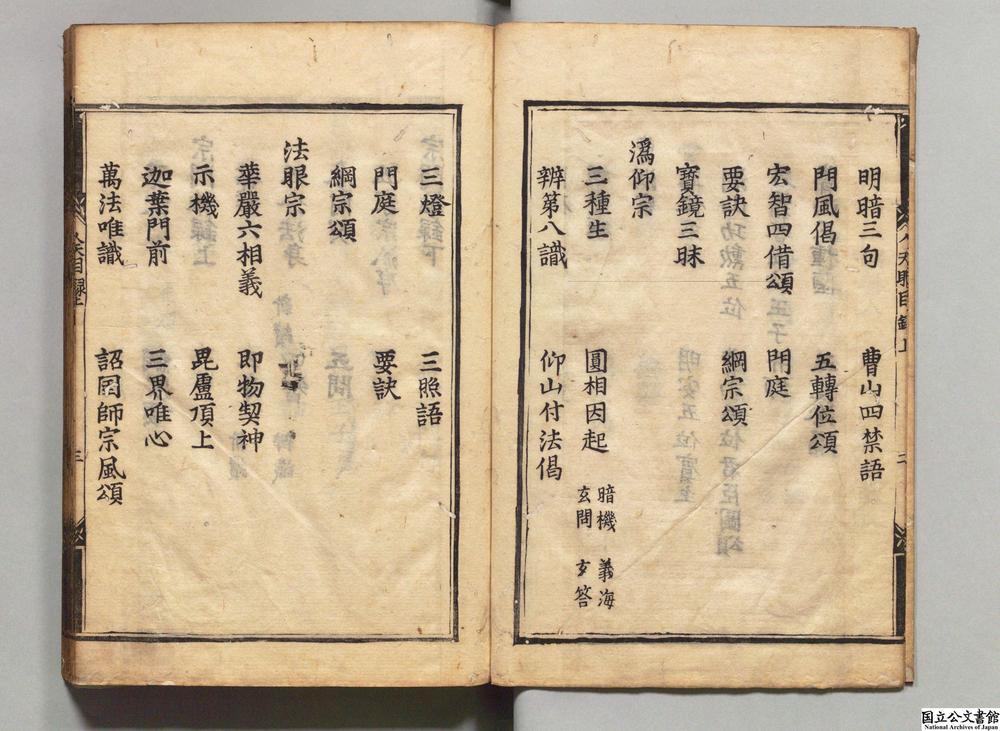 明暗三句 曹山四禁語
門風偈 五轉位頌
宏智四借頌 門庭
要訣 綱宗頌
寶鏡三昧
潙仰宗
三種生 圓相因起 暗機 義海 玄問 玄答
辨第八識 仰山付法偈
三燈 三照語
門庭 要訣
綱宗頌
法眼宗
華嚴六相義 即物契神
示機 毘盧頂上
迦葉門前 三界唯心
萬法唯識 詔国師宗風頌
人天眼目錄上 二
人天目錄上 三
国立公文書館
National Archives of Japan